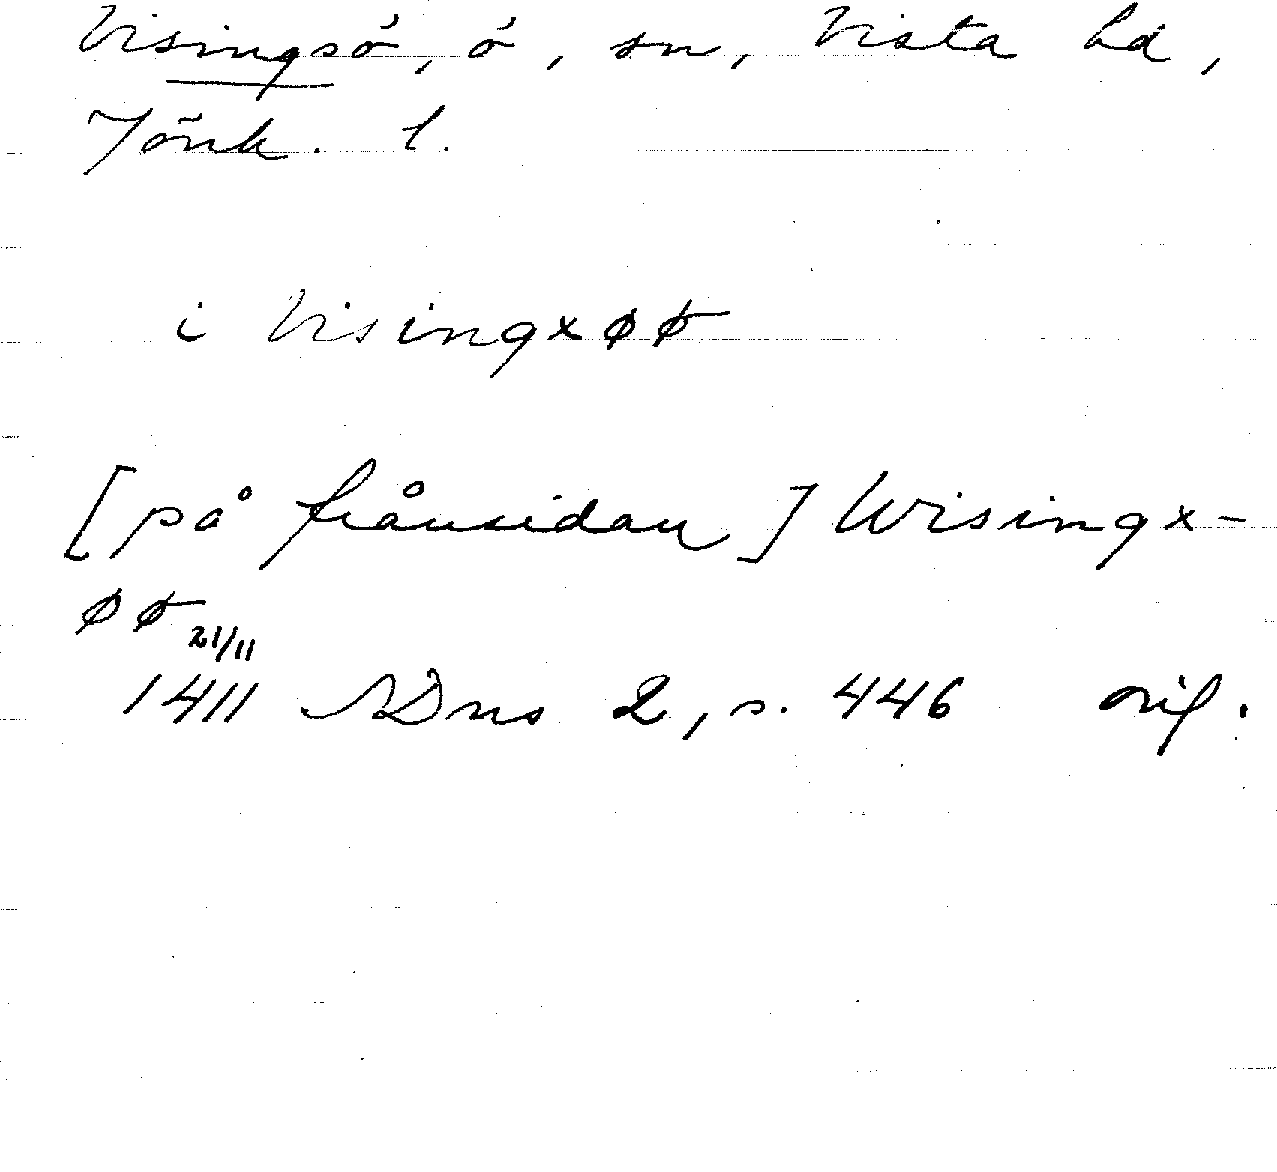 Visingsö, ö, sn, Vista hd,
Jönk. l.
i Visingxøø
[på frånsidan] Wisingx-
øø
21/11
1411 SDns 2, s. 446 orig.